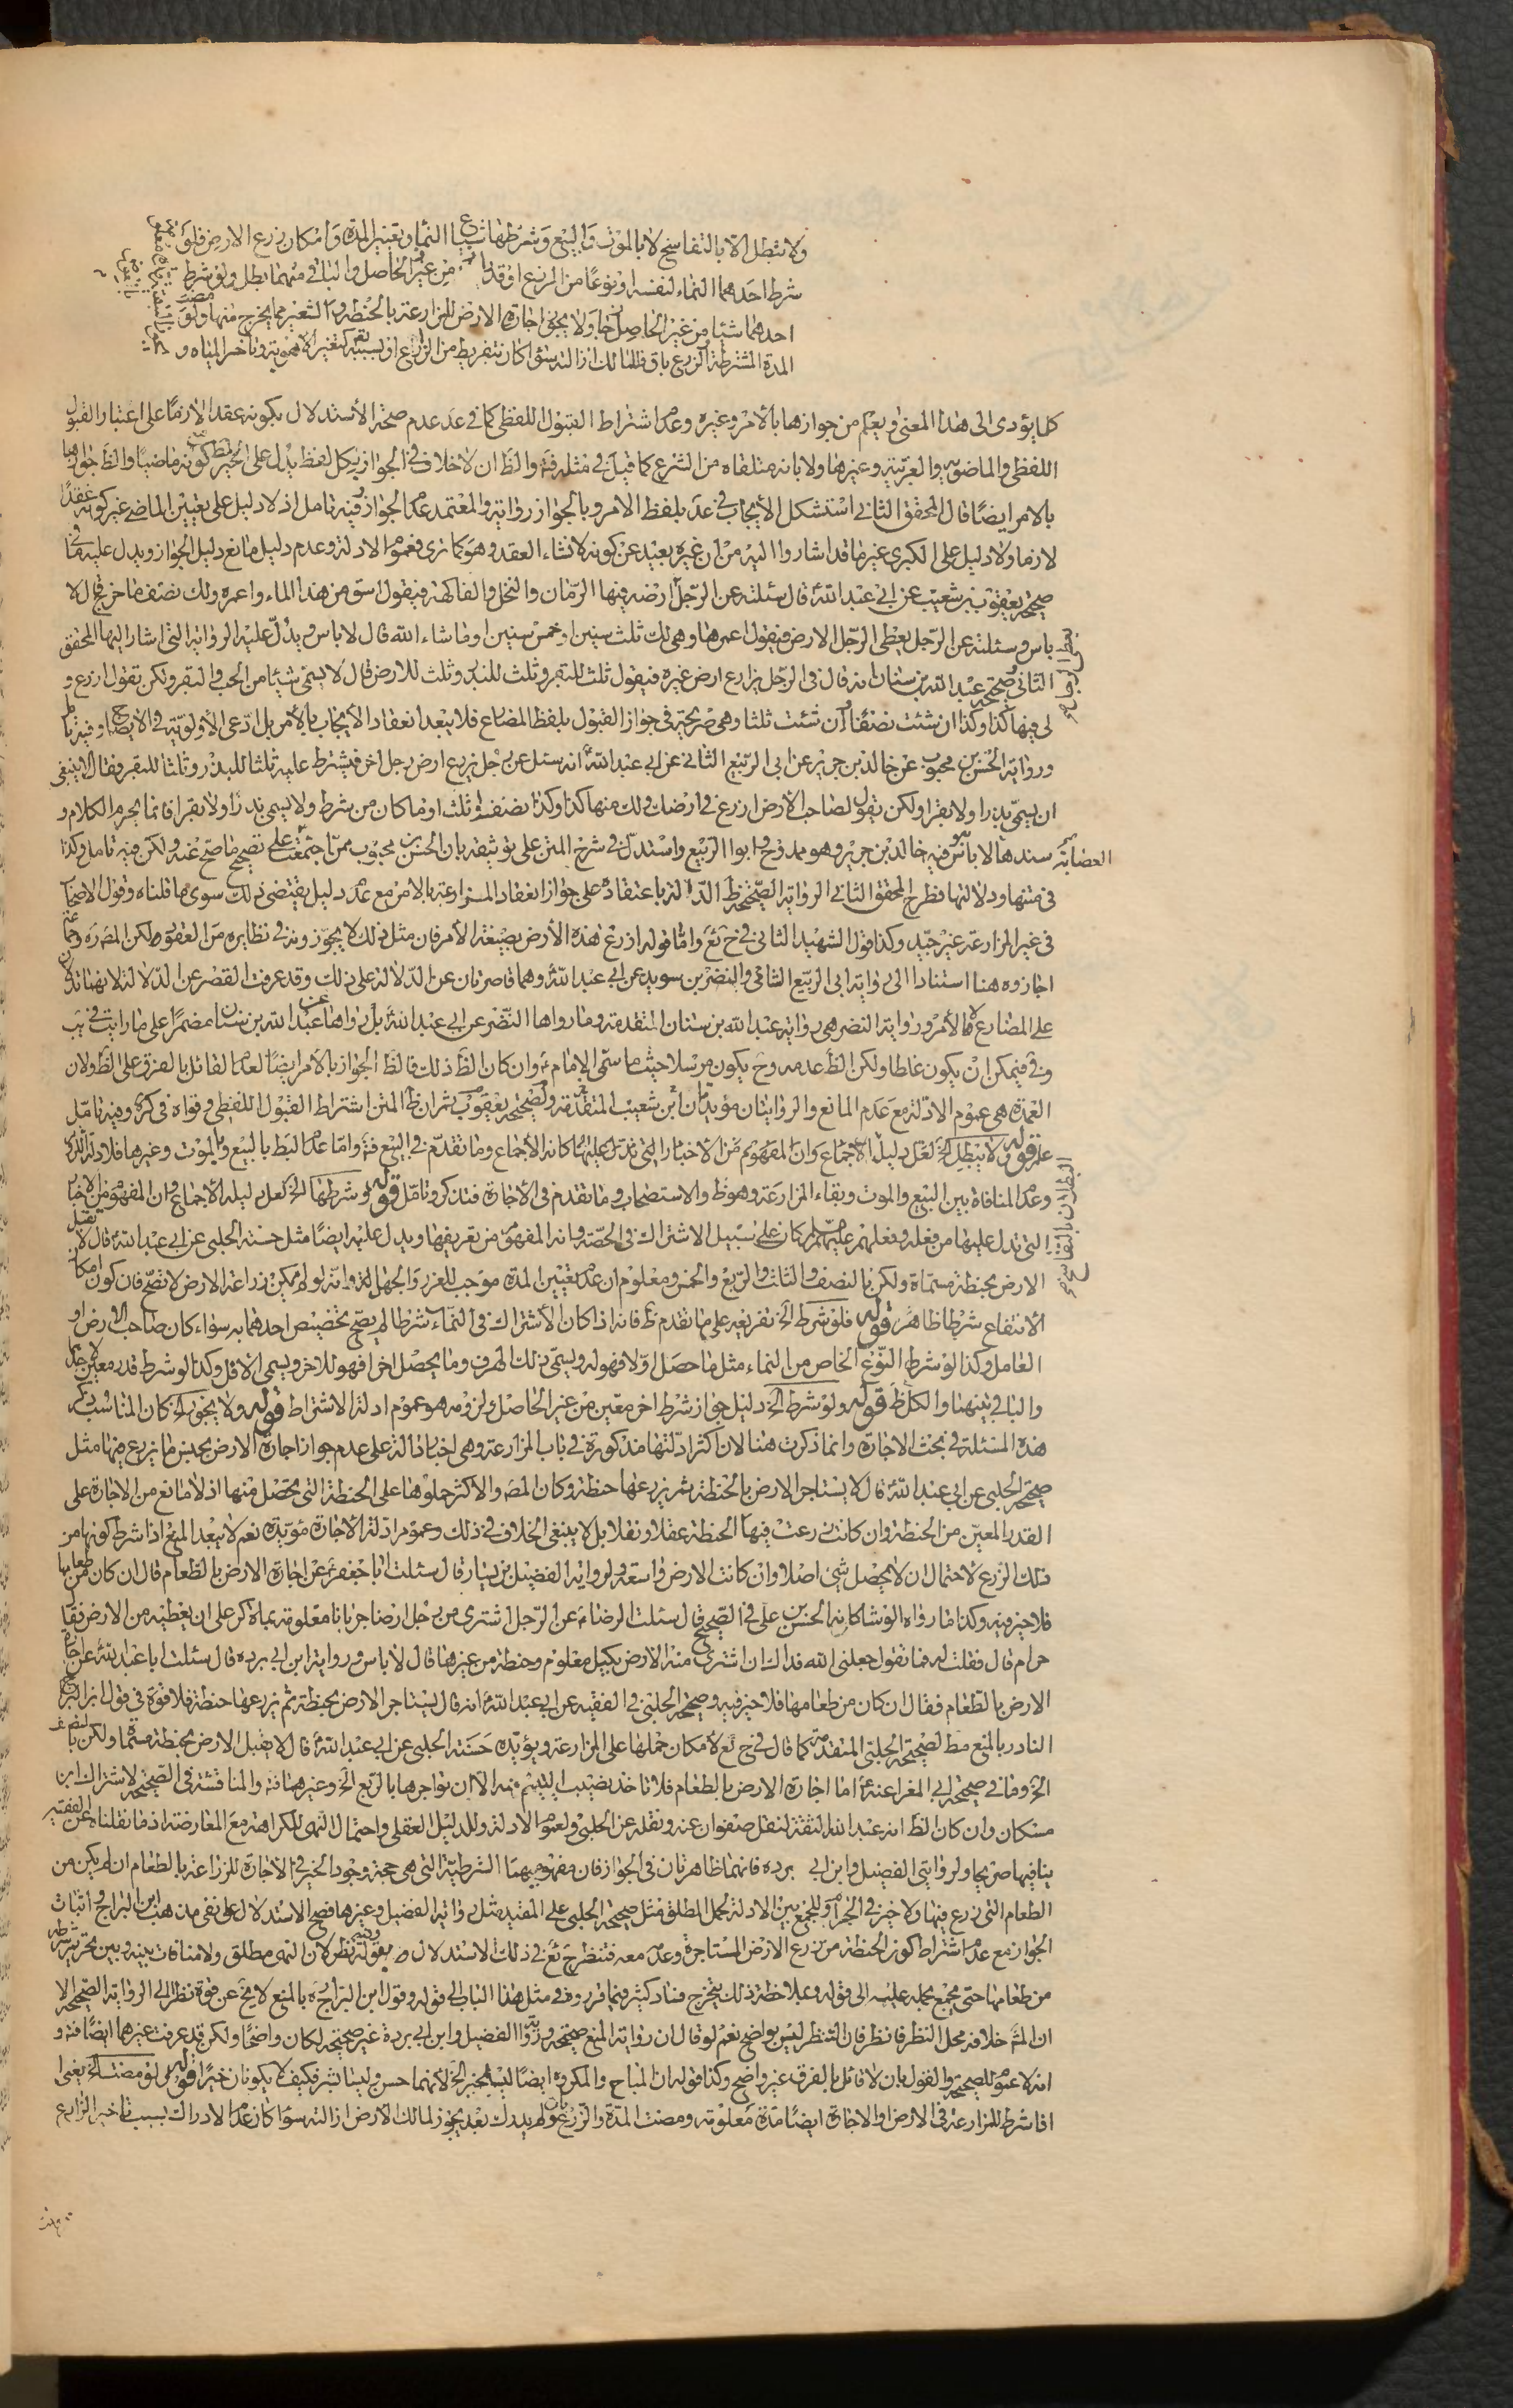 ولا تبطل الا بالتفاسخ لا بالموت والبيع وشرطها شياع النماء وتعيين المدة وامكان زرع الارض فلو
شرط احدهما النماء لنفسه او نوعا من الزرع او قدرا من الحاصل والباقي بينهما بطل ولو شرط
احدهما شيئا من غير الحاصل جاز ولا يجوز اجارة الارض للزراعة بالحنطة والشعير مما يخرج منها ولو مضت
المدة المشترطة والزرع باق فللمالك ازالته سواء كان بتفريط من الزارع او بسببه تعالى كتغير الاهوية وتاخير المياه و
كلما يؤدى الى هذا المعنى ويعلم من جوازها بالامر وغيره وعدم اشتراط القبول اللفظى كما في عد عدم صحة الاستدلال بكونه عقدا لازما على اعتبار القبول
اللفظى والماضوية والعربية وغيرها ولا بانه متلقاه من الشرع كما قيل في مثله فتم والظ ان لا خلاف في الجواز بكل لفظ يدل على الخ بلفظ كونه ماضيا والظ جوازها
بالامر ايضا قال المحقق الثاني استشكل الايجاب في عد بلفظ الامر وبالجواز رواية والمعتمد عدم الجواز وفيه تامل اذ لا دليل على تعيين الماضى غير كونه عقدا
لازما ولا دليل على الكبرى غير ما قد اشاروا اليه من ان غيره بعيد عن كونه لانشاء العقد وهو كما ترى فعموم الادلة وعدم دليل مانع دليل الجواز ويدل عليه ما في
صحيحة يعقوب بن شعيب عن ابي عبد الله ع قال سئلته عن الرجل ارضه فيها الرمان والنخل والفاكهة فيقول اسق من هذا الماء واعمره ولك نصف ما خرج قال لا
باس وسئلته عن الرجل يعطى الرجل الارض فيقول اعمرها وهى لك ثلث سنين او خمس سنين او ما شاء الله قال لا باس ويدل عليه الرواية التى اشار اليها المحقق
الثانى وصحيحة عبد الله بن سنان انه قال في الرجل يزارع ارض غيره فيقول ثلث للبقر وثلث للبذر وثلث للارض قال لا يسمى شيئا من الحب والبقر ولكن تقول ازرع و
لى فيها كذا وكذا ان شئت نصفا وان شئت ثلثا وهى صريحة في جواز القبول بلفظ المضارع فلا يبعد انعقاد الايجاب بالامر بل ادعى الاولوية في الايضاح وفيه تامل
ورواية الحسن بن محبوب عن خالد بن جرير عن ابى الربيع الشامى عن ابى عبد الله ع انه سئل عن رجل يزرع ارض رجل اخر فيشترط عليه ثلثا للبذر وثلثا للبقر فقال لا ينبغى
ان يسمى بذرا ولا بقرا ولكن يقول لصاحب الارض ازرع في ارضك ولك منها كذا وكذا نصف او ثلث او ما كان من شرط ولا يسمى بذرا ولا بقرا فانما يحرم الكلام و
سندها لا باس به فيه خالد بن جرير وهو ممدوح وابو الربيع واستدل في شرح المتن على توثيقه بان الحسن بن محبوب ممن اجتمعت العصابة على تصحيح ما صح عنه ولكن فيه تامل وكذا
في متنها ودلالتها فطرح المحقق الثانى الرواية الصحيحة الدالة باعتقاده على جواز انعقاد المزارعة بالامر مع عدم دليل يقتضى ذلك سوى ما قلناه وقول الاصحاب
في غير المزارعة غير جيد وكذا قول الشهيد الثانى في ح ئع واما قوله ازرع هذه الارض بصيغة الامر فان مثل ذلك لا يجوزونه في نظايره من العقود لكن المص ره وجماعة
اجازوه هنا استنادا الى رواية ابى الربيع الشامى والنضر بن سويد عن ابى عبد الله ع وهما قاصرتان عن الدلالة على ذلك وقد عرفت القصر عن الدلالة لانهما تدلان
على المضارع لا الامر ورواية النضر هى رواية عبد الله بن سنان المتقدمة وما رواها النضر عن ابى عبد الله ع بل رواها عن عبد الله بن سنان مضمرا على ما رايت في يب
وفى فيمكن ان يكون غلطا ولكن الظ عدمه وح يكون مرسلا حيث ما سمى الامام ع وان كان الظ ذلك فالظ الجواز بالامر ايضا لعدم القائل بالفرق على الظ ولان
العمدة هى عموم الادلة مع عدم المانع والروايتان مؤيدتان لصحيحة يعقوب بن شعيب المتقدمة ثم ان ظ المتن اشتراط القبول اللفظى وقواه في كره وفيه تامل
قوله ولا تبطل الخ لعل دليله الاجماع وان المفهوم من الاخبار التى تدل عليها كانه الاجماع وما تقدم في البيع فتم واما عدم البط بالبيع وبالموت وغيرها فلادلة اللزوم
وعدم المنافاة بين البيع والموت وبقاء المزارعة وهو ظ والاستصحاب وما تقدم في الاجارة فتذكر وتامل قوله وشرطها الخ لعل دليله الاجماع وان المفهوم من الاخبار
التى تدل عليها من فعله وفعلهم عليهم السلم كان على سبيل الاشتراك في الحصة وانه المفهوم من تعريفها ويدل عليه ايضا مثل حسنة الحلبى عن ابى عبد الله ع قال لا تقبل
الارض بحنطة مسماة ولكن بالنصف والثلث والربع والخمس ومعلوم ان عدم تعيين المدة موجب للغرر والجهالة وانه لو لم يمكن زراعة الارض لا تصح فان كون امكان
الانتفاع شرطا ظاهر قوله فلو شرط الخ تفريعه على ما تقدم ظ فانه اذا كان الاشتراك في النماء شرطا لم يصح تخصيص احدهما به سواء كان صاحب الارض او
العامل وكذا لو شرط النوع الخاص من النماء مثل ما حصل اولا فهو له ويسمى ذلك الهرف وما يحصل اخرا فهو للاخر ويسمى الاقل وكذا لو شرط قدر معين لاحدهما
والباقي بينهما والكل ظ قوله ولو شرط الخ دليل جواز شرط اخر معين من غير الحاصل ولزومه هو عموم ادلة الاشتراط قوله ولا يجوز الخ كان المناسب ذكر
هذه المسئلة في بحث الاجارة وانما ذكرت هنا لان اكثر ادلتها مذكورة في باب المزارعة وهى اخبار دالة على عدم جواز اجارة الارض بجنس ما يزرع فيها مثل
صحيحة الحلبى عن ابى عبد الله ع قال لا يستاجر الارض بالحنطة ثم يزرعها حنطة وكان المص والاكثر حملوها على الحنطة التى يحصل منها اذ لا مانع من الاجارة على
القدر المعين من الحنطة وان كانت زرعت فيها الحنطة عقلا ونقلا بل لا ينبغى الخلاف في ذلك وعموم ادلة الاجارة مؤيدة نعم لا يبعد المنع اذا شرط كونها من
ذلك الزرع لاحتمال ان لا يحصل شئ اصلا وان كانت الارض واسعة ولرواية الفضيل بن يسار قال سئلت ابا جعفر ع عن اجارة الارض بالطعام قال ان كان من طعامها
فلا خير فيه وكذا ما رواه الوشا كانه الحسن بن على في الصحيح قال سئلت الرضا ع عن الرجل اشترى من رجل ارضا جربانا معلومة بماة كر على ان يعطيه من الارض فقال
حرام قال فقلت له فما تقول جعلنى الله فداك ان اشترى منه الارض بكيل معلوم وحنطة من غيرها قال لا باس ورواية ابن ابى برده قال سئلت ابا عبد الله ع عن اجارة
الارض بالطعام فقال ان كان من طعامها فلا خير فيه وصحيحة الحلبى في الفقيه عن ابى عبد الله ع انه قال لا يستاجر الارض بحنطة ثم يزرعها حنطة فلا قوة في قول ابن البراج
النادر بالمنع مط لصحيحة الحلبى المتقدمة كما قال في ح ئع لامكان حملها على المزارعة ويؤيده حسنة الحلبى عن ابى عبد الله ع قال لا تقبل الارض بحنطة مسماة ولكن بالنصف
الخ وما في صحيحة ابى المغرا عنه ع اما اجارة الارض بالطعام فلا تاخذ نصيب اليتيم منه الا ان تؤاجرها بالربع الخ وغيرها فتم والمناقشة في الصحيحة لاشتراك ابن
مسكان وان كان الظ انه عبد الله الثقة لنقل صفوان عنه ونقله عن الحلبى ولعموم الادلة وللدليل العقلى واحتمال النهى للكراهة مع المعارضة اذ ما نقلناه عن الفقيه
ينافيها صريحا ولروايتى الفضيل وابن ابى برده فانهما ظاهرتان في الجواز فان مفهوميهما الشرطية التى هى حجة وجود الخير في الاجارة للزراعة بالطعام ان لم يكن من
الطعام التى زرع فيها ولا خير في الحرام وللجمع بين الادلة بحمل المطلق مثل صحيحة الحلبى على المقيد مثل رواية الفضيل وغيرها فصح الاستدلال على نفى مذهب ابن البراج واثبات
الجواز مع عدم اشتراط كون الحنطة من زرع الارض المستاجرة وعدمه معه فتنظر ح ئع في ذلك الاستدلال بقوله وفيه نظر لان النهى مطلق ولا منافات بينه وبين تحريم شرطه
من طعامها حتى يجمع بحمله عليه الى قوله وبملاحظة ذلك يتخرج فساد كثير مما قرروه في مثل هذا الباب الى قوله وقول ابن البراج ره بالمنع لا يخ عن قوة نظرا الى الرواية الصحيحة الا
ان المش خلافه محل النظر فانظر فان التنظر ليس بواضح نعم لو قال ان رواية المنع صحيحة ورواية الفضيل وابن ابى بردة غير صحيحة لكان واضحا ولكن قد عرفت غيرهما ايضا فتم و
انه لا عموم للصحيحة والقول بان لا قائل بالفرق غير واضح وكذا قوله ان المباح والمكروه ايضا ليسا بخير الخ لانهما حسن وليسا بشر فكيف لا يكونان خيرا قوله ولو مضت الخ يعنى
اذا شرط للمزارعة في الارض او الاجارة ايضا مدة معلومة ومضت المدة والزرع باق ولم يدرك بعد يجوز لمالك الارض ازالته سواء كان عدم الادراك بسبب تاخير الزارع